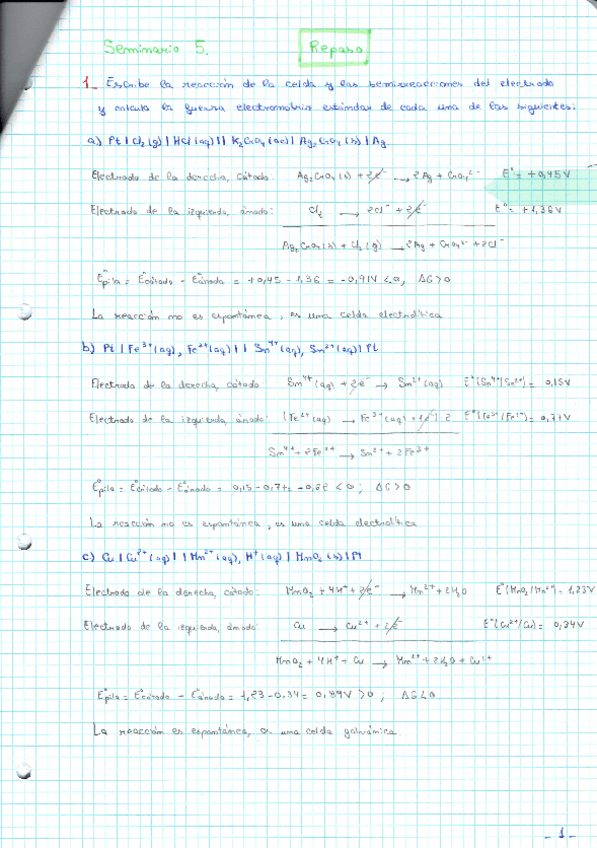 Seminario 5. Repaso
1_ Escribe la reacción de la celda y las semirreacciones del electrodo
y calcula la fuerza electromotriz estándar de cada una de las siguientes:
a) Pt | Cl₂ (g) | HCl (aq) || K₂CrO₄ (ac) | Ag₂CrO₄ (s) | Ag
Electrodo de la derecha, cátodo: Ag₂CrO₄ (s) + 2e⁻ → 2Ag + CrO₄²⁻ E° = +0,45V
Electrodo de la izquierda, ánodo: Cl₂ → 2Cl⁻ + 2e⁻ E° = +1,36V
Ag₂CrO₄ (s) + Cl₂ (g) → 2Ag + CrO₄²⁻ + 2Cl⁻
E°pila = E°cátodo - E°ánodo = +0,45 - 1,36 = -0,91V < 0, ΔG > 0
La reacción no es espontánea, es una celda electrolítica
b) Pt | Fe³⁺ (aq), Fe²⁺ (aq) || Sn⁴⁺ (aq), Sn²⁺ (aq) | Pt
Electrodo de la derecha, cátodo: Sn⁴⁺ (aq) + 2e⁻ → Sn²⁺ (aq) E° (Sn⁴⁺/Sn²⁺) = 0,15V
Electrodo de la izquierda, ánodo: (Fe²⁺ (aq) → Fe³⁺ (aq) + 1e⁻) 2 E° (Fe³⁺/Fe²⁺) = 0,77V
Sn⁴⁺ + 2Fe²⁺ → Sn²⁺ + 2Fe³⁺
E°pila = E°cátodo - E°ánodo = 0,15 - 0,77 = -0,62 < 0; ΔG > 0
La reacción no es espontánea, es una celda electrolítica
c) Cu | Cu²⁺ (aq) || Mn²⁺ (aq), H⁺ (aq) | MnO₂ (s) | Pt
Electrodo de la derecha, cátodo: MnO₂ + 4H⁺ + 2e⁻ → Mn²⁺ + 2H₂O E° (MnO₂/Mn²⁺) = 1,23V
Electrodo de la izquierda, ánodo: Cu → Cu²⁺ + 2e⁻ E° (Cu²⁺/Cu) = 0,34V
MnO₂ + 4H⁺ + Cu → Mn²⁺ + 2H₂O + Cu²⁺
E°pila = E°cátodo - E°ánodo = 1,23 - 0,34 = 0,89V > 0; ΔG < 0
La reacción es espontánea, es una celda galvánica
_ 1 _